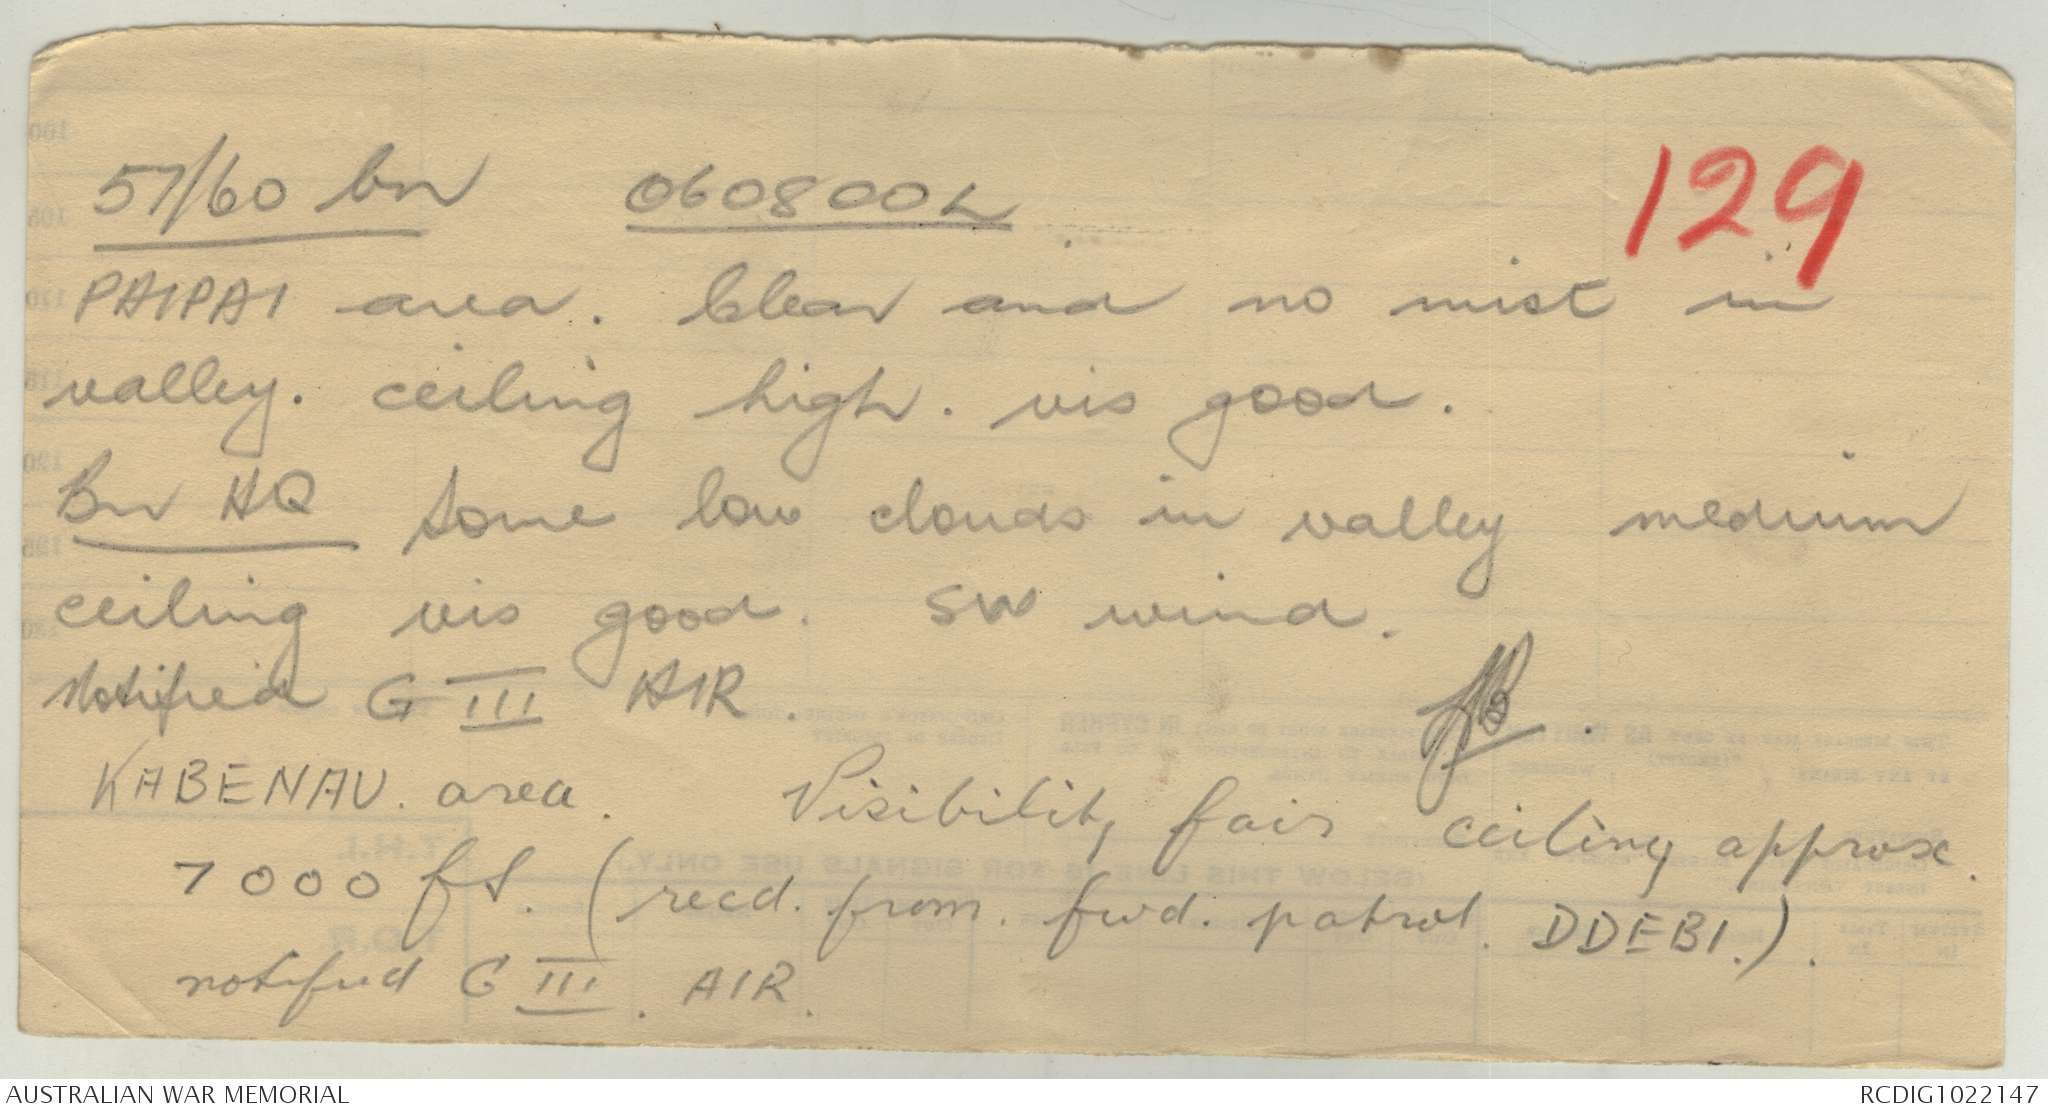 129
57/60 bn 060800L
PAIPAI area. Clear and no mist in
valley. ceiling high. vis good.
Bn HQ Some low clouds in valley medium
ceiling vis good. SW wind.
Notified G III AIR
KABENAU. area. Visibility fair ceiling approx.
7000 ft. (recd. from. fwd. patrol. DDEBI.).
notified G III. AIR.
(BELOW THIS LINE IS FOR SIGNALS USE ONLY.)
T.H.I.
T.O.R.
AUSTRALIAN WAR MEMORIAL
RCDIG1022147